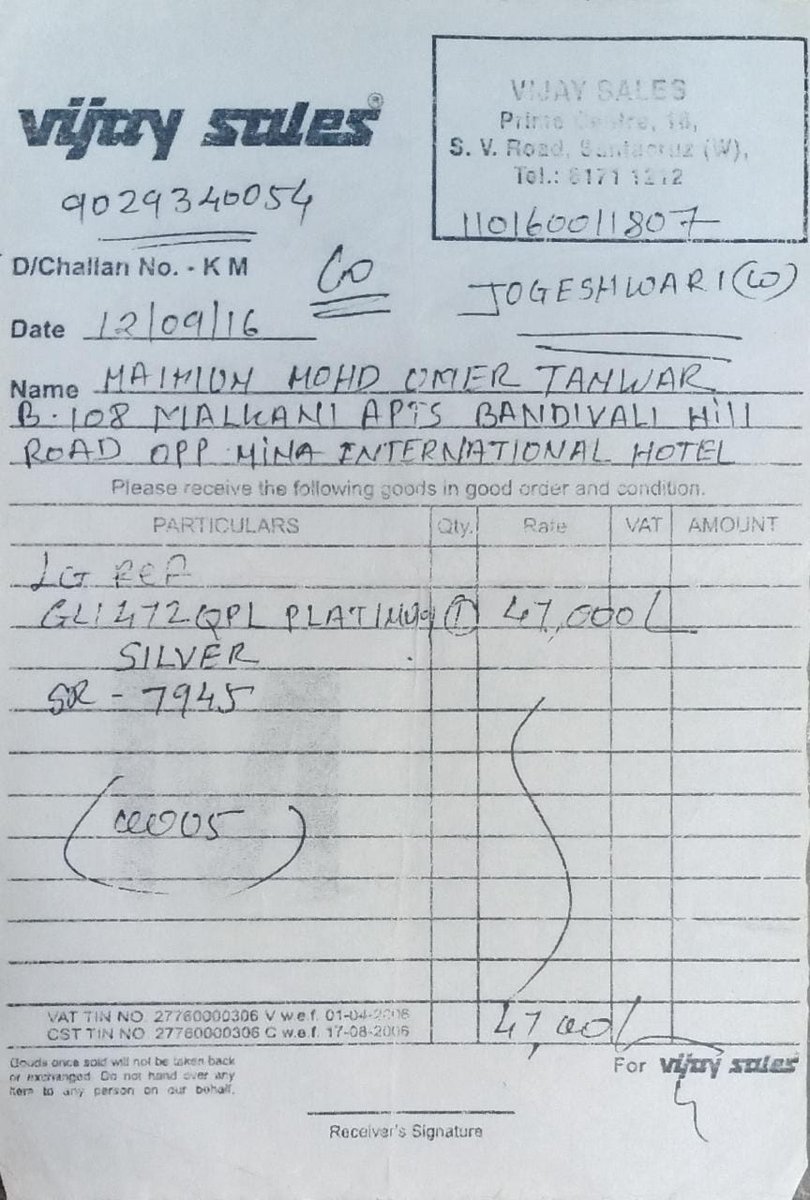 vijay sales®
VIJAY SALES
Prime Centre, 16,
S. V. Road, Santacruz (W),
Tel.: 6171 1212
9029340054
110160011807
D/Challan No. - K M
JOGESHWARI (W)
Date 12/09/16
Name MAIMUN MOHD OMER TANWAR
B-108 MALKANI APTS BANDIVALI Hill
ROAD OPP MiNA INTERNATIONAL HOTEL
Please receive the following goods in good order and condition.
PARTICULARS Qty. Rate VAT AMOUNT
LG REF
GLI472QPL PLATINUM 1 47,000/
SILVER
SR - 7945
VAT TIN NO. 27760000306 V w.e.f. 01-04-2006
CST TIN NO 27760000306 C w.e.f. 17-08-2006
47,000/
Goods once sold will not be taken back
or exchanged. Do not hand over any
item to any person on our behalf.
For vijay sales
Receiver's Signature